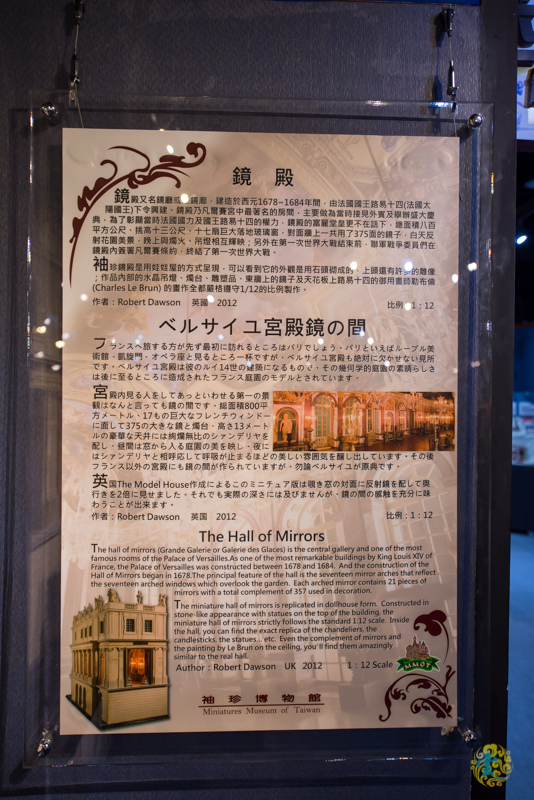 鏡 殿
鏡殿又名鏡廳或鏡廊，建造於西元1678~1684年間，由法國國王路易十四(法國太
陽國王)下令興建，鏡殿乃凡爾賽宮中最著名的房間，主要做為當時接見外賓及舉辦盛大慶
典，為了彰顯當時法國國力及國王路易十四的權力，鏡殿的富麗堂皇更不在話下，總面積八百
平方公尺、挑高十三公尺、十七扇巨大落地玻璃窗，對面牆上一共用了375面的鏡子，白天反
射花園美景，晚上與燭火、吊燈相互輝映；另外在第一次世界大戰結束前，聯軍戰爭委員們在
鏡殿內簽署凡爾賽條約，終結了第一次世界大戰。
袖珍鏡殿是用娃娃屋的方式呈現，可以看到它的外觀是用石頭砌成的，上頭還有許多的雕像
；作品內部的水晶吊燈、燭台、雕塑品、東牆上的鏡子及天花板上路易十四的御用畫師勒布倫
(Charles Le Brun) 的畫作全都嚴格遵守1/12的比例製作。
作者：Robert Dawson 英國 2012 比例：1：12
ベルサイユ宮殿鏡の間
フランスへ旅する方が先ず最初に訪れるところはパリでしょう。パリといえばルーブル美
術館、凱旋門、オペラ座と見るところ一杯ですが、ベルサイユ宮殿も絶対に欠かせない見所
です。ベルサイユ宮殿は彼のルイ14世の建築になるもので、その幾何学的庭園の素晴らしさ
は後に至るところに造成されたフランス庭園のモデルとされています。
宮殿内見る人をしてあっといわせる第一の景
観はなんと言っても鏡の間です。総面積800平
方メートル、17もの巨大なフレンチウィンドー
に面して375の大きな鏡と燭台、高さ13メート
ルの豪華な天井には絢爛無比のシャンデリヤを
配し、昼間は窓から入る庭園の美を映し、夜に
はシャンデリヤと相呼応して呼吸が止まるほどの美しい雰囲気を醸し出しています。その後
フランス以外の宮殿にも鏡の間が作られていますが、勿論ベルサイユが原典です。
英国The Model House作成によるこのミニチュア版は覗き窓の対面に反射鏡を配して奥
行きを2倍に見せました。それでも実際の深さには及びませんが、鏡の間の感触を充分に味
わうことが出来ます。
作者：Robert Dawson 英国 2012 比例：1：12
The Hall of Mirrors
The hall of mirrors (Grande Galerie or Galerie des Glaces) is the central gallery and one of the most
famous rooms of the Palace of Versailles.As one of the most remarkable buildings by King Louis XIV of
France, the Palace of Versailles was constructed between 1678 and 1684. And the construction of the
Hall of Mirrors began in 1678.The principal feature of the hall is the seventeen mirror arches that reflect
the seventeen arched windows which overlook the garden. Each arched mirror contains 21 pieces of
mirrors with a total complement of 357 used in decoration.
The miniature hall of mirrors is replicated in dollhouse form. Constructed in
stone-like appearance with statues on the top of the building, the
miniature hall of mirrors strictly follows the standard 1:12 scale. Inside
the hall, you can find the exact replica of the chandeliers, the
candlesticks, the statues... etc. Even the complement of mirrors and
the painting by Le Brun on the ceiling, you'll find them amazingly
similar to the real hall.
Author : Robert Dawson UK 2012 1 : 12 Scale
MMOT
袖珍博物館
Miniatures Museum of Taiwan